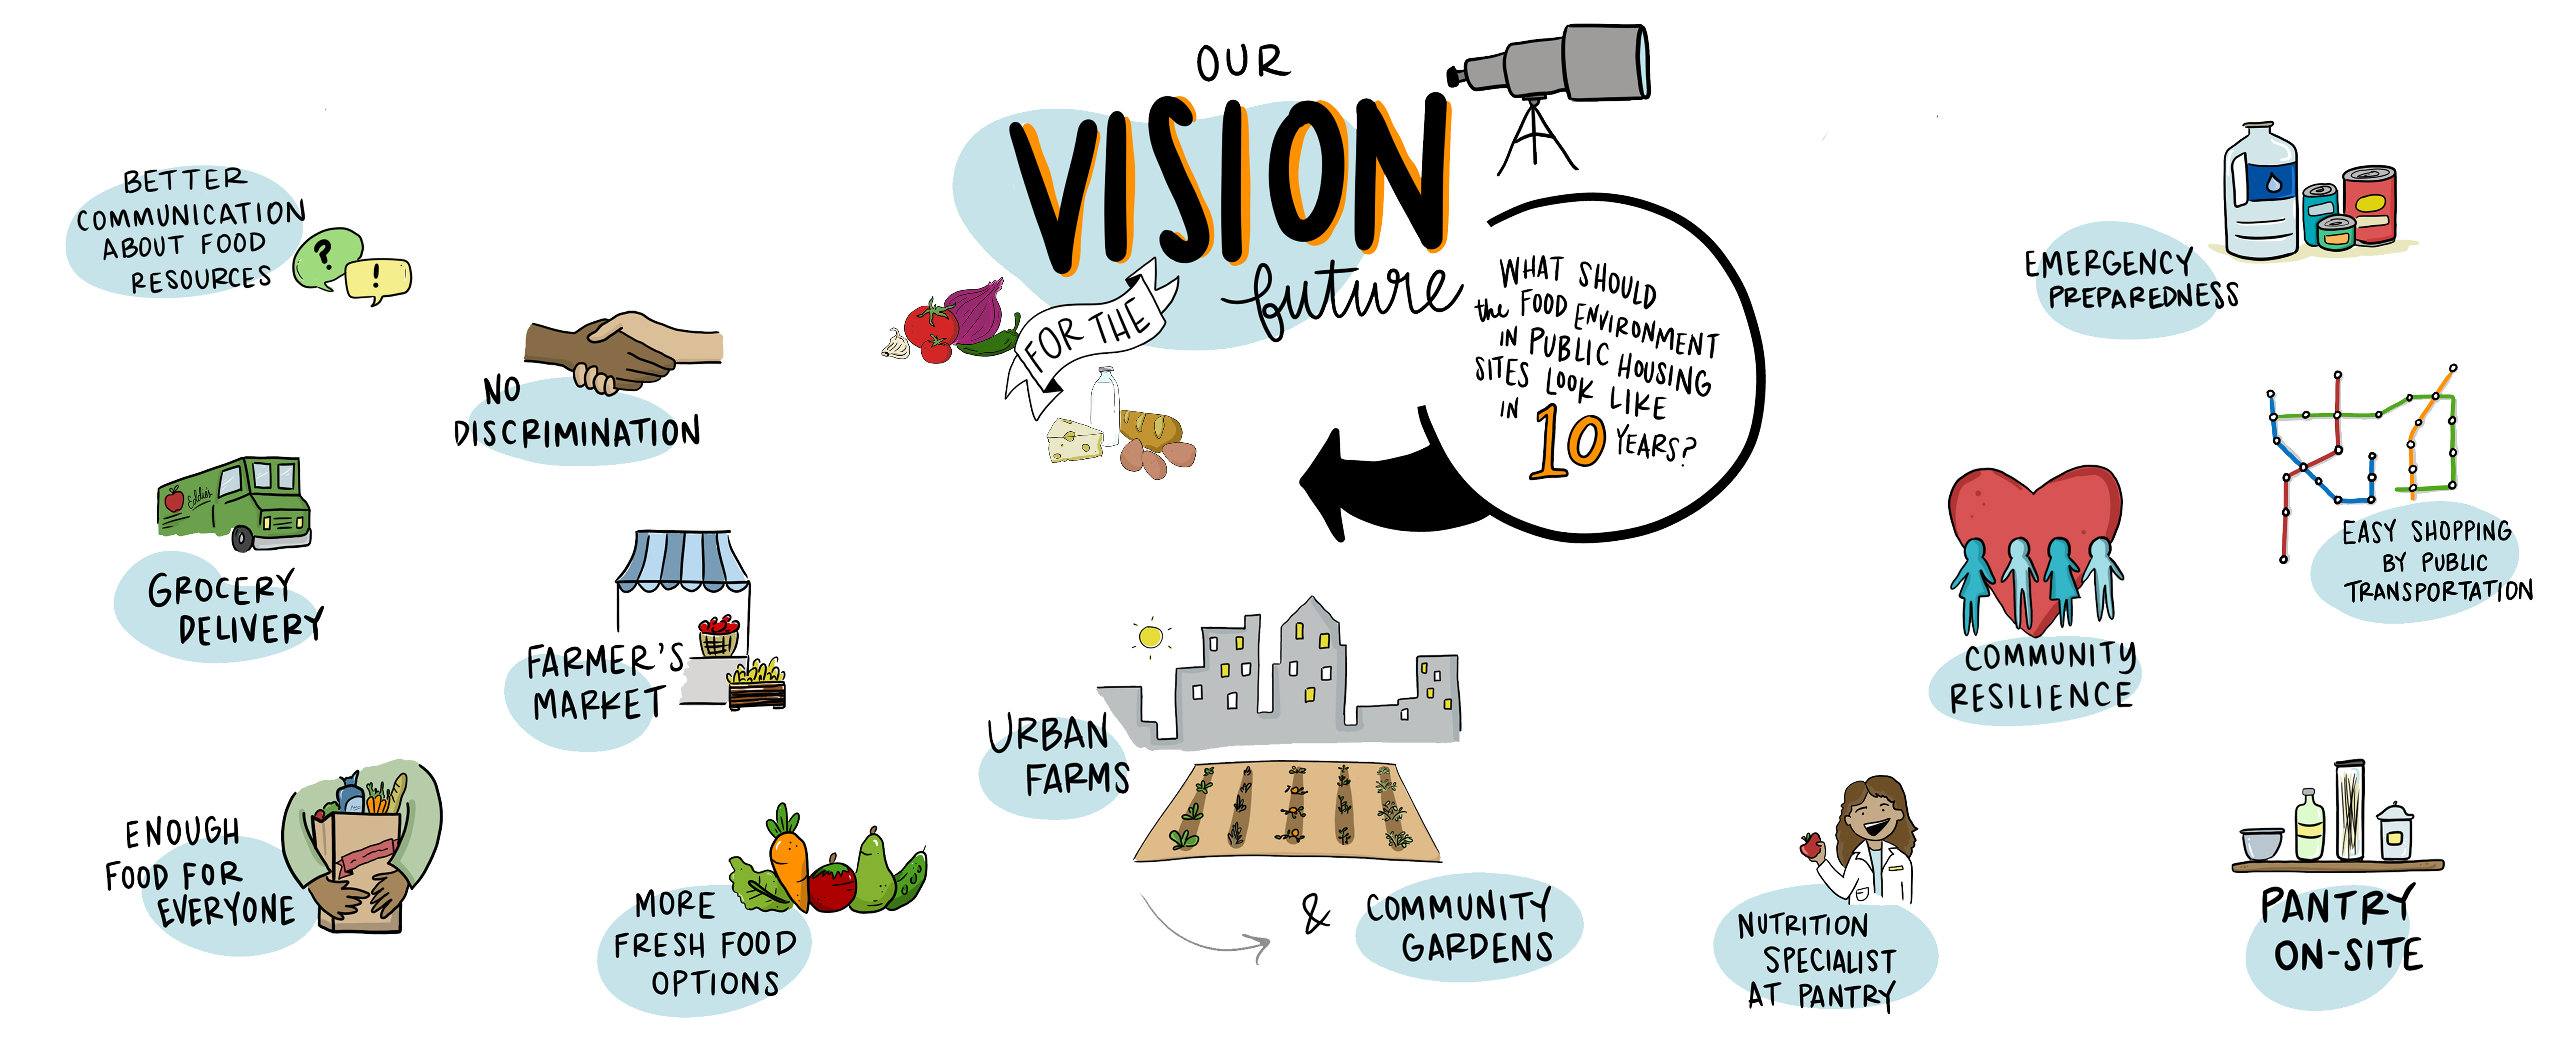 OUR
VISION
FOR THE
future
WHAT SHOULD
the FOOD ENVIRONMENT
IN PUBLIC HOUSING
SITES LOOK LIKE
IN 10 YEARS?
BETTER
COMMUNICATION
ABOUT FOOD
RESOURCES
?
!
NO
DISCRIMINATION
Eddie's
GROCERY
DELIVERY
FARMER'S
MARKET
ENOUGH
FOOD FOR
EVERYONE
MORE
FRESH FOOD
OPTIONS
URBAN
FARMS
& COMMUNITY
GARDENS
EMERGENCY
PREPAREDNESS
EASY SHOPPING
BY PUBLIC
TRANSPORTATION
COMMUNITY
RESILIENCE
NUTRITION
SPECIALIST
AT PANTRY
PANTRY
ON-SITE